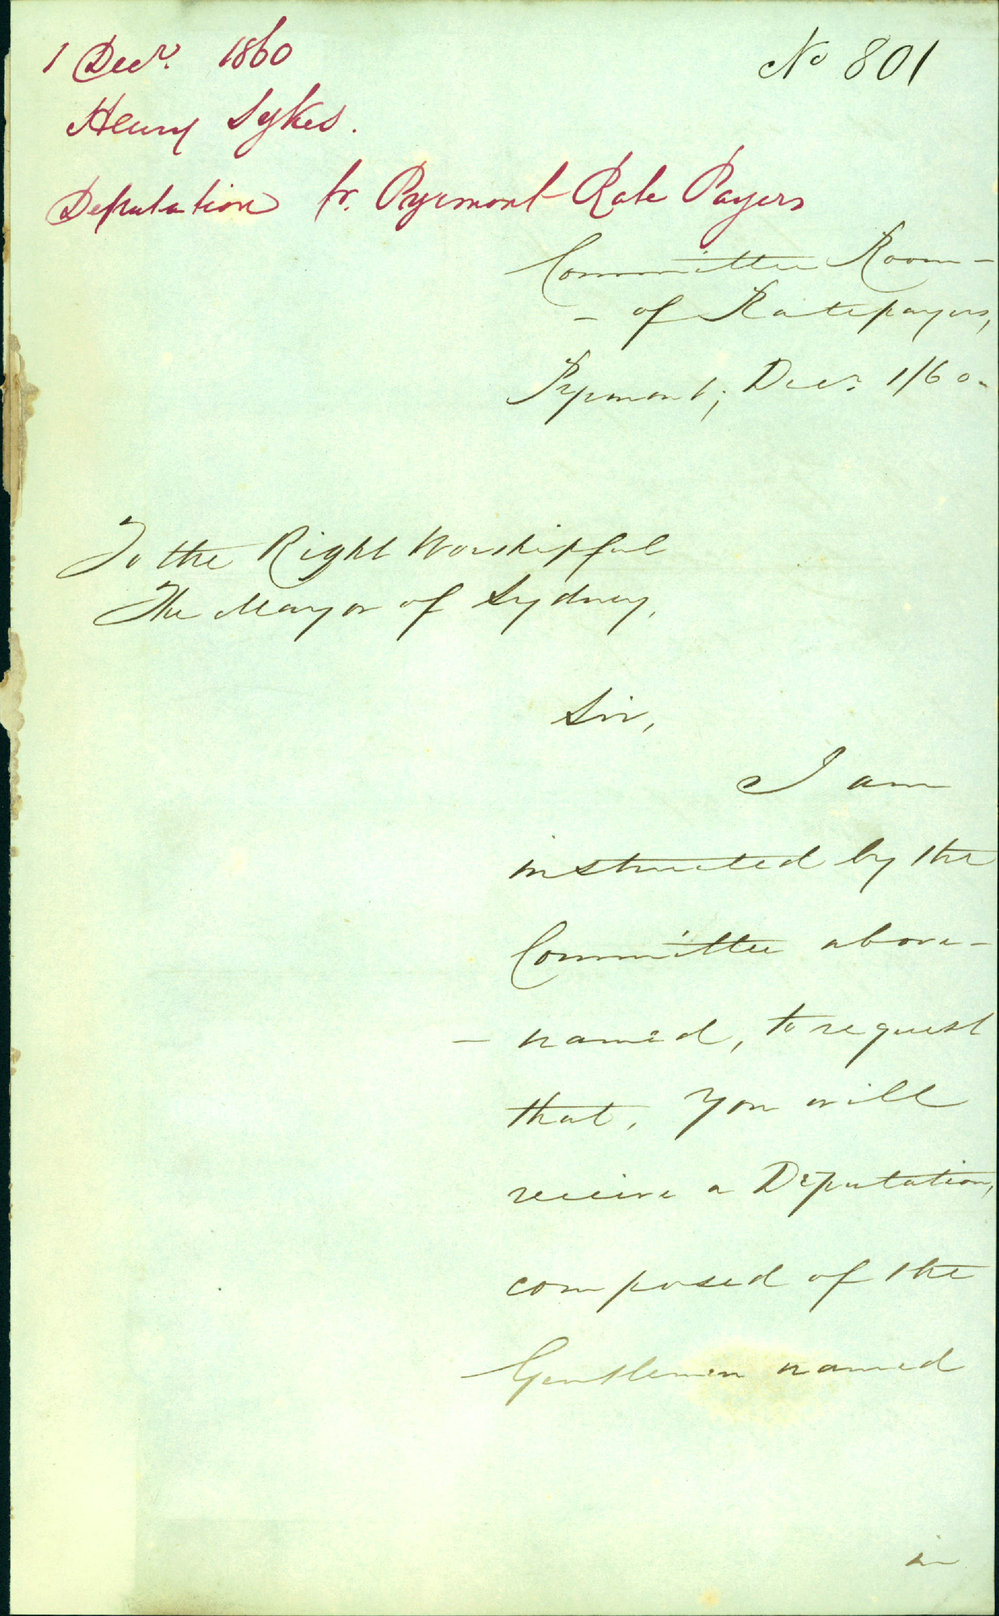 1 Decr. 1860
No 801
Henry Sykes.
Deputation fr. Pyrmont Rate Payers
Committee Room -
- of Ratepayers,
Pyrmont, Decr. 1/60.
To the Right Worshipful
The Mayor of Sydney,
Sir,
I am
instructed by the
Committee above-
- named, to request
that, you will
receive a Deputation,
composed of the
Gentlemen named
in